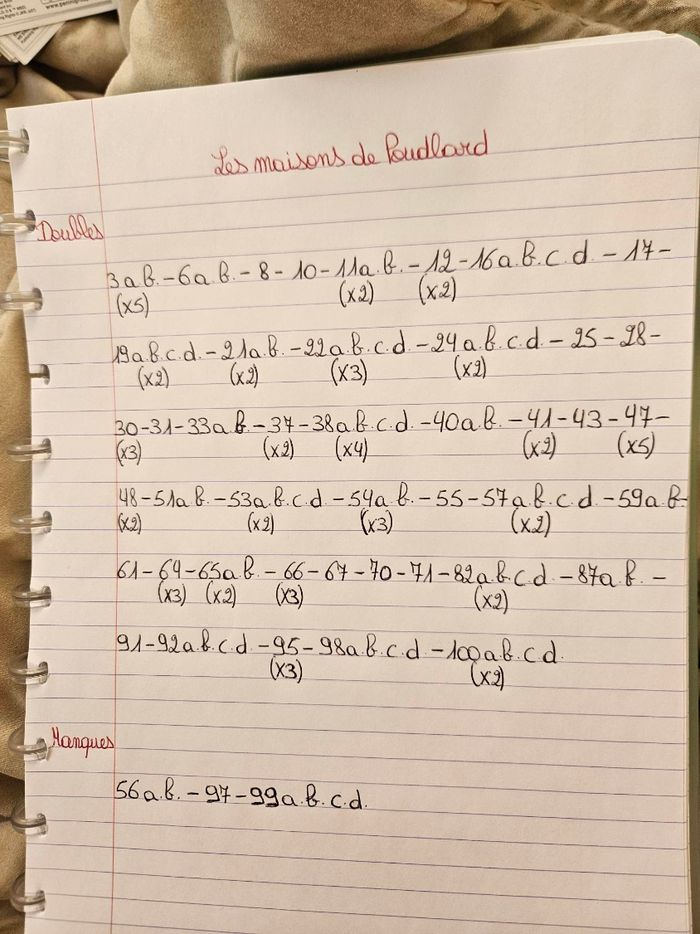 Les maisons de Poudlard
Doubles
3a.b. - 6a.b. - 8 - 10 - 11a.b. - 12 - 16a.b.c.d. - 17 -
(x5) (x2) (x2)
19a.b.c.d. - 21a.b. - 22a.b.c.d. - 24a.b.c.d. - 25 - 28 -
(x2) (x2) (x3) (x2)
30 - 31 - 33a.b. - 37 - 38a.b.c.d. - 40a.b. - 41 - 43 - 47 -
(x3) (x2) (x4) (x2) (x5)
48 - 51a.b. - 53a.b.c.d. - 54a.b. - 55 - 57a.b.c.d. - 59a.b.
(x2) (x2) (x3) (x2)
61 - 64 - 65a.b. - 66 - 67 - 70 - 71 - 82a.b.c.d. - 87a.b. -
(x3) (x2) (x3) (x2)
91 - 92a.b.c.d. - 95 - 98a.b.c.d. - 100a.b.c.d.
(x3) (x2)
Manques
56a.b. - 97 - 99a.b.c.d.